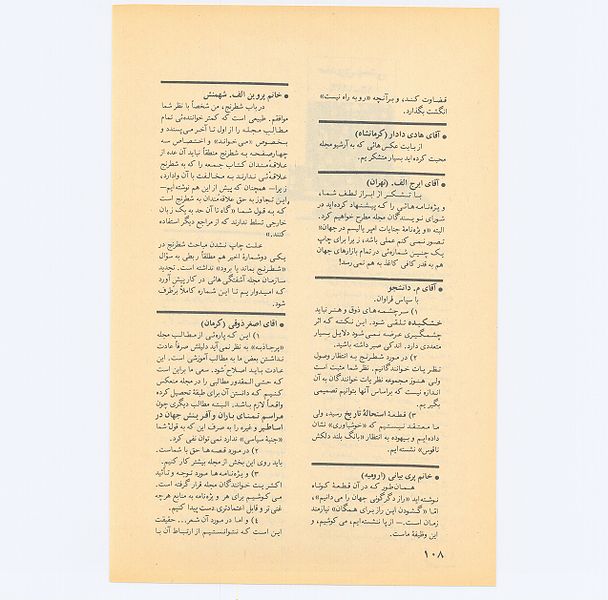 قضاوت کنند، و برآنچه «رو به راه نیست»
انگشت بگذارد.
● آقای هادی دادار (کرمانشاه)
از بابت عکس‌هائی که به آرشیو مجله
محبت کرده‌اید بسیار متشکریم.
● آقای ایرج الف. (تهران)
با تشکر از ابراز لطف شما،
و ویژه‌نامه‌هائی را که پیشنهاد کرده‌اید در
شورای نویسندگان مجله مطرح خواهیم کرد.
البته «و ویژه‌نامهٔ جنایات امپریالیسم در جهان»
تصور نمی‌کنم عملی باشد، زیرا برای چاپ
یک چنین شماره‌ئی در تمام بازارهای جهان
هم به قدر کافی کاغذ به هم نمی‌رسد!
● آقای م. دانشجو
با سپاس فراوان.
۱) سرچشمه‌های ذوق و هنر نباید
خشکیده تلقی شود. این نکته که اثر
چشمگیری عرضه نمی‌شود دلایل بسیار
متعددی دارد. اندکی صبر داشته باشید.
۲) در مورد شطرنج به انتظار وصول
نظریات خوانندگانیم. نظر شما مثبت است
ولی هنوز مجموعه نظریات خوانندگان به آن
اندازه نیست که براساس آنها بتوانیم تصمیمی
بگیریم.
۳) قطعهٔ استحالهٔ تاریخ رسید، ولی
ما معتقد نیستیم که «خوشباوری» نشان
داده‌ایم و بیهوده به انتظار «بانگ بلند دلکش
ناقوس» نشسته‌ایم.
● خانم پری بیانی (ارومیه)
همان‌طور که در آن قطعهٔ کوتاه
نوشته‌اید «راز دگرگونی جهان را می‌دانیم»،
امّا «گشودن این راز برای همگان» نیازمند
زمان است.— از پا ننشسته‌ایم، می‌کوشیم، و
این وظیفهٔ ماست.
● خانم پروین الف. شهمنش
در باب شطرنج، من شخصاً با نظر شما
موافقم. طبیعی است که کمتر خواننده‌ئی تمام
مطالب مجله را از اول تا آخر می‌پسندد و
بخصوص «می‌خواند» و اختصاص سه
چهارصفحه به شطرنج منطقاً نباید آن عده از
علاقه‌مندان کتاب جمعه را که به شطرنج
علاقه‌ئی ندارند به مخالفت با آن وادارد،
زیرا— همچنان که پیش از این هم نوشته‌ایم—
این تجاوز به حق علاقه‌مندان به شطرنج است
که به قول شما «گاه تا آن حد به یک زبان
خارجی تسلط ندارند که از مراجع دیگر استفاده
کنند.»
علت چاپ نشدن مباحث شطرنج در
یکی دوشمارهٔ اخیر هم مطلقاً ربطی به سؤال
«شطرنج بماند یا برود» نداشته است. تجدید
سازمان مجله آشفتگی‌هائی در کار پیش آورد
که امیدواریم تا این شماره کاملاً برطرف
شود.
● آقای اصغر ذوقی (کرمان)
۱) این که پاره‌ئی از مطالب مجله
«پرجاذبه» به نظر نمی‌آید دلیلش صرفاً عادت
نداشتن بعض ما به مطالب آموزشی است. این
عادت باید اصلاح شود. سعی ما براین است
که حتی‌المقدور مطالبی را در مجله منعکس
کنیم که دانستن آن برای طبقهٔ تحصیل کرده
واقعاً لازم باشد. البته مطالب دیگری چون
مراسم تمنای باران و آفرینش جهان در
اساطیر و غیره را به صرف این که به قول شما
«جنبهٔ سیاسی» ندارد نمی‌توان نفی کرد.
۲) در مورد قصه‌ها حق با شماست.
باید روی این بخش از مجله بیشتر کار کنیم.
۳) ویژه‌نامه‌ها مورد توجه و تأیید
اکثریت خوانندگان مجله قرار گرفته است.
می‌کوشیم برای هر ویژه‌نامه به منابع هرچه
غنی‌تر و قابل اعتمادتری دست پیدا کنیم.
۴) و اما در مورد آن شعر... حقیقت
این است که نتوانستیم از ارتباط آن با
۱۰۸